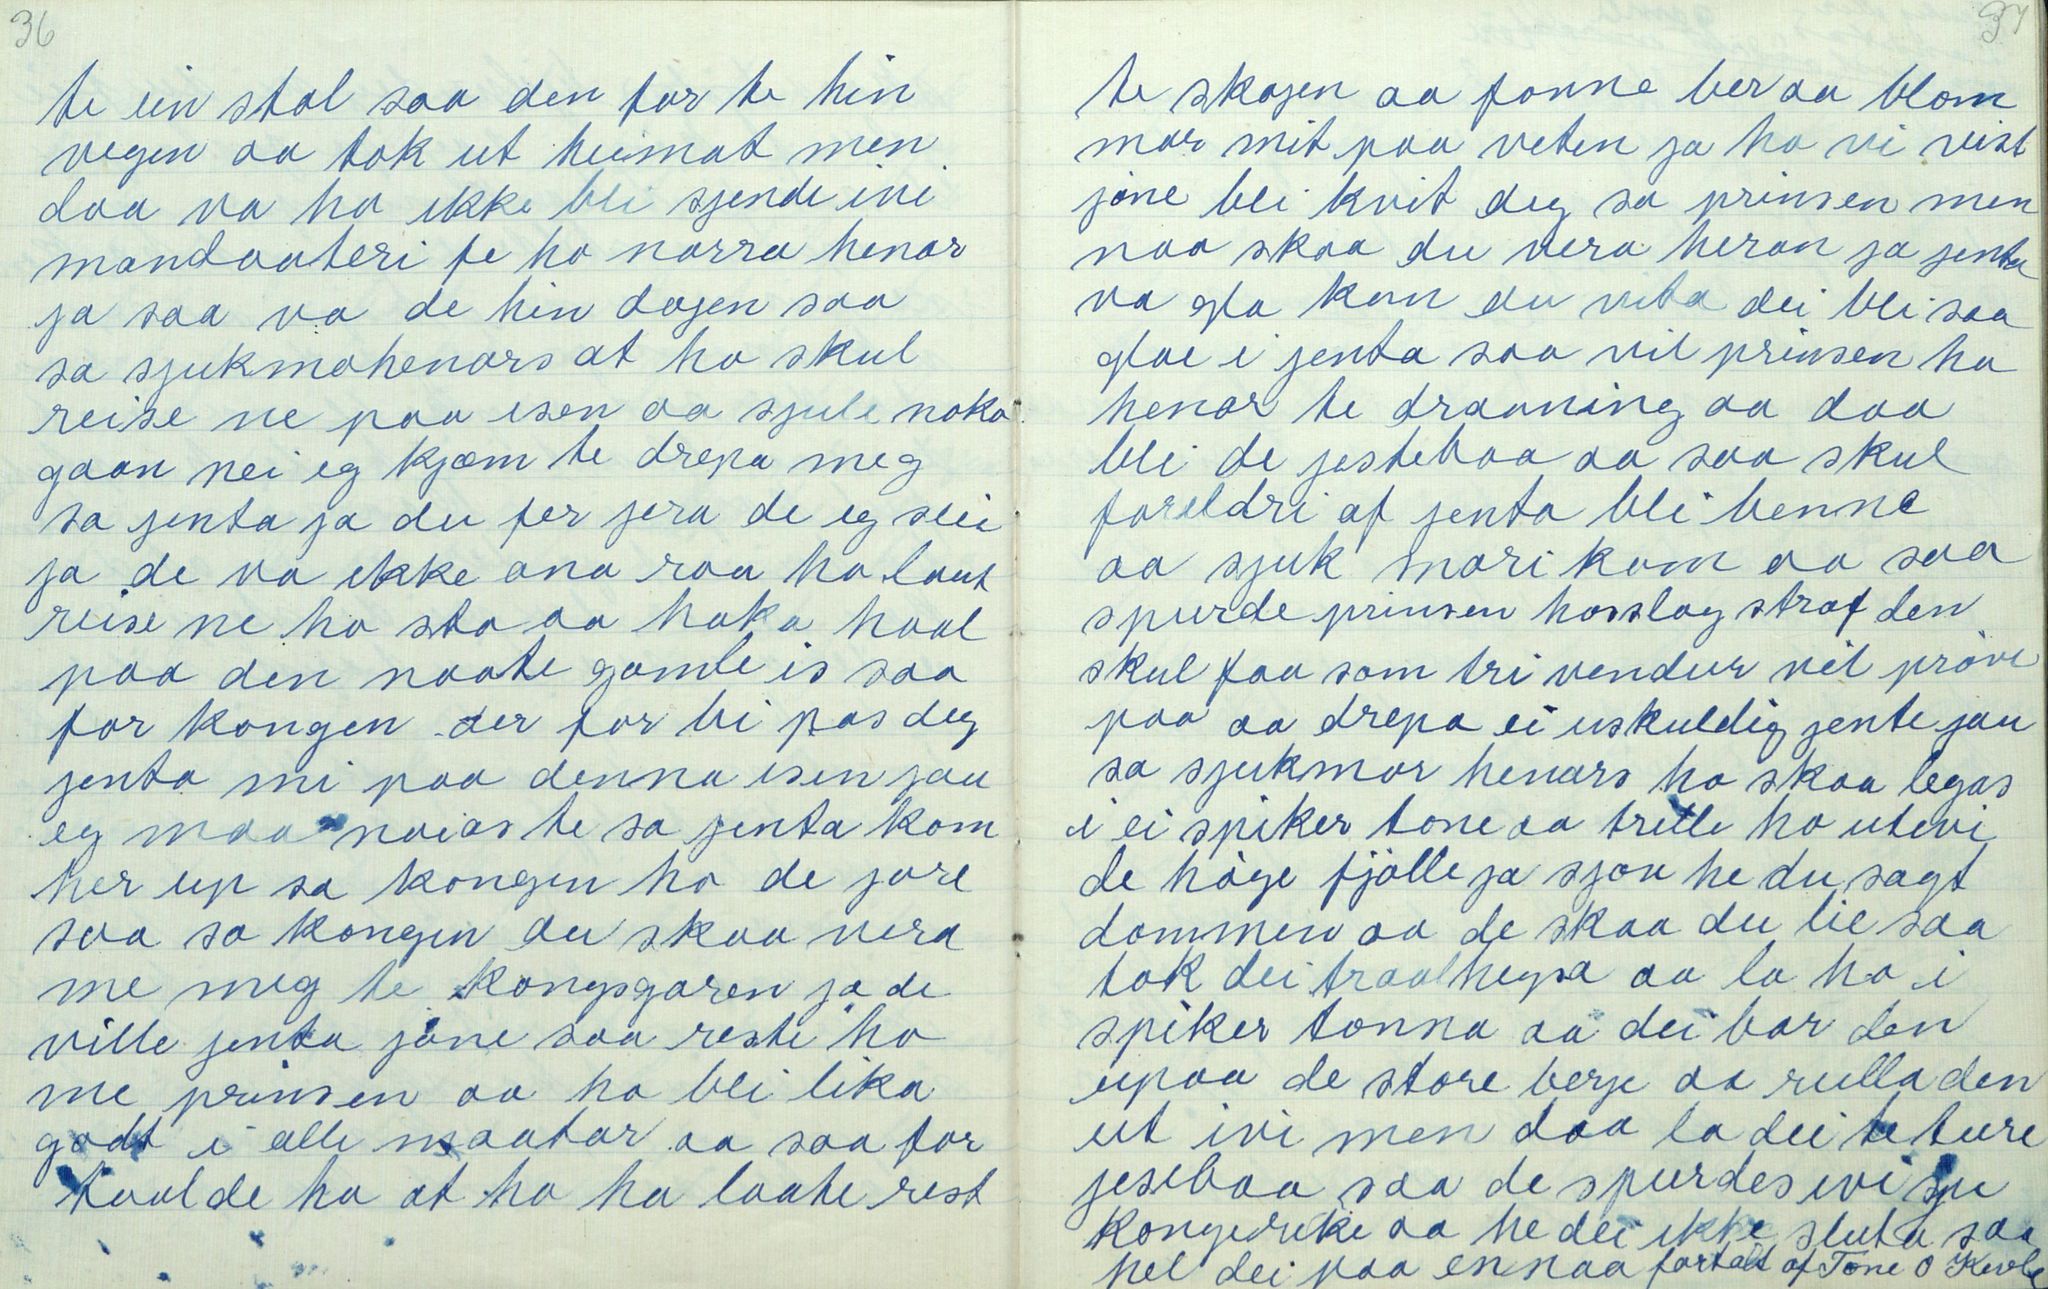 36
te ein stol saa den for te hin
vegen aa tok ut heimat men
daa va ho ikke bli sjende ini
mandaateri fe ho narra henar
ja saa va de hin dagen saa
sa sjukmohenars at ho skul
reise ne paa isen aa sjule noko
gaan nei eg kjæm te drepa meg
sa jenta ja du fer jera de eg seii
ja de va ikke ana raa ho laut
reise ne ho sto aa haka haal
paa den naate gamle is saa
for kongen der for bi pas deg
jenta mi paa denna isen jau
eg maa noias te sa jenta kom
her up sa kongen ho de jore
saa sa kongen du skaa vera
me meg te kongsgaren ja de
ville jenta jöne saa reste ho
me prinsen aa ho bli lika
godt i alle maatar aa saa for
taalde ho at ho ha laate rest
37
te skogen aa fonne ber aa blom
mar mit paa veten ja ho vi vist
jöne bli kvit deg sa prinsen men
naa skaa du vera heran ja jenta
va gla kan du vita dei bli saa
glae i jenta saa vil prinsen ha
henar te draaning aa daa
bli de jesteboa aa saa skul
foreldri af jenta bli benne
aa sjuk mori kom aa saa
spurde prinsen hosslag straf den
skul faa som tri vendur vil pröve
paa aa drepa ei uskuldig jente jau
sa sjukmor henars ho skaa legas
i ei spiker tone aa trille ho utivi
de höge fjölle ja sjøu he du sagt
dommen aa de skaa du lie saa
tok dei traalhegsa aa la ho i
spiker tonna aa dei bar den
upaa de store berje aa rulla den
ut ivi men daa la dei te ture
jeseboa saa de spurdes ivi sju
kongerike aa he dei ikke sluta saa
hel dei paa ennaa fortalt af Tone O